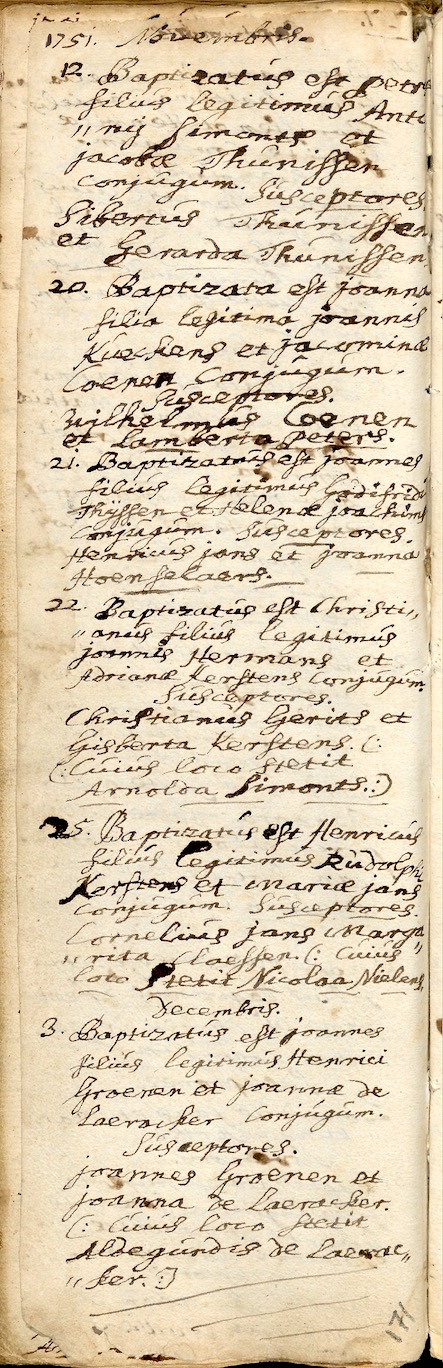 1751. Novembris.
12. Baptizatus est petrus
filius legitimus Anto
„ nij Simonts et
jacobæ Thunissen
conjugum. Susceptores
Sibertus Thunissen
et Gerarda Thunissen
20. Baptizata est joanna
filia legitima joannis
Kueckens et jacominæ
Coenen Conjugum.
Susceptores.
Wilhelmus Coenen
et Lamberta peters.
21. Baptizatus est joannes
filius legitimus Godifridi
Thijssen et Helenæ joachims
Conjugum. Susceptores.
Henricus jans et joanna
Hoenselaars.
22. Baptizatus est Christi„
„anus filius legitimus
joannis Hermans et
Adrianæ Kerstens Conjugum.
Susceptores.
Christianus Gerits et
Gisberta Kerstens. (:
(: Cuius loco stetit
Arnolda Simonts. :)
25. Baptizatus est Henricus
filius legitimus Rudolphi
Kerstens et Mariæ jans
Conjugum. Susceptores.
Cornelius jans Marga„
„rita Claessen. (: Cuius
loco Stetit Nicolaa Nielens
Decembris.
3. Baptizatus est joannes
filius legitimus Henrici
Groenen et joannæ de
Laeracker Conjugum.
Susceptores.
joannes Groenen et
joanna de Laeracker.
(: Cuius loco stetit
Aldegundis de Laerac„
„ker. :)
171